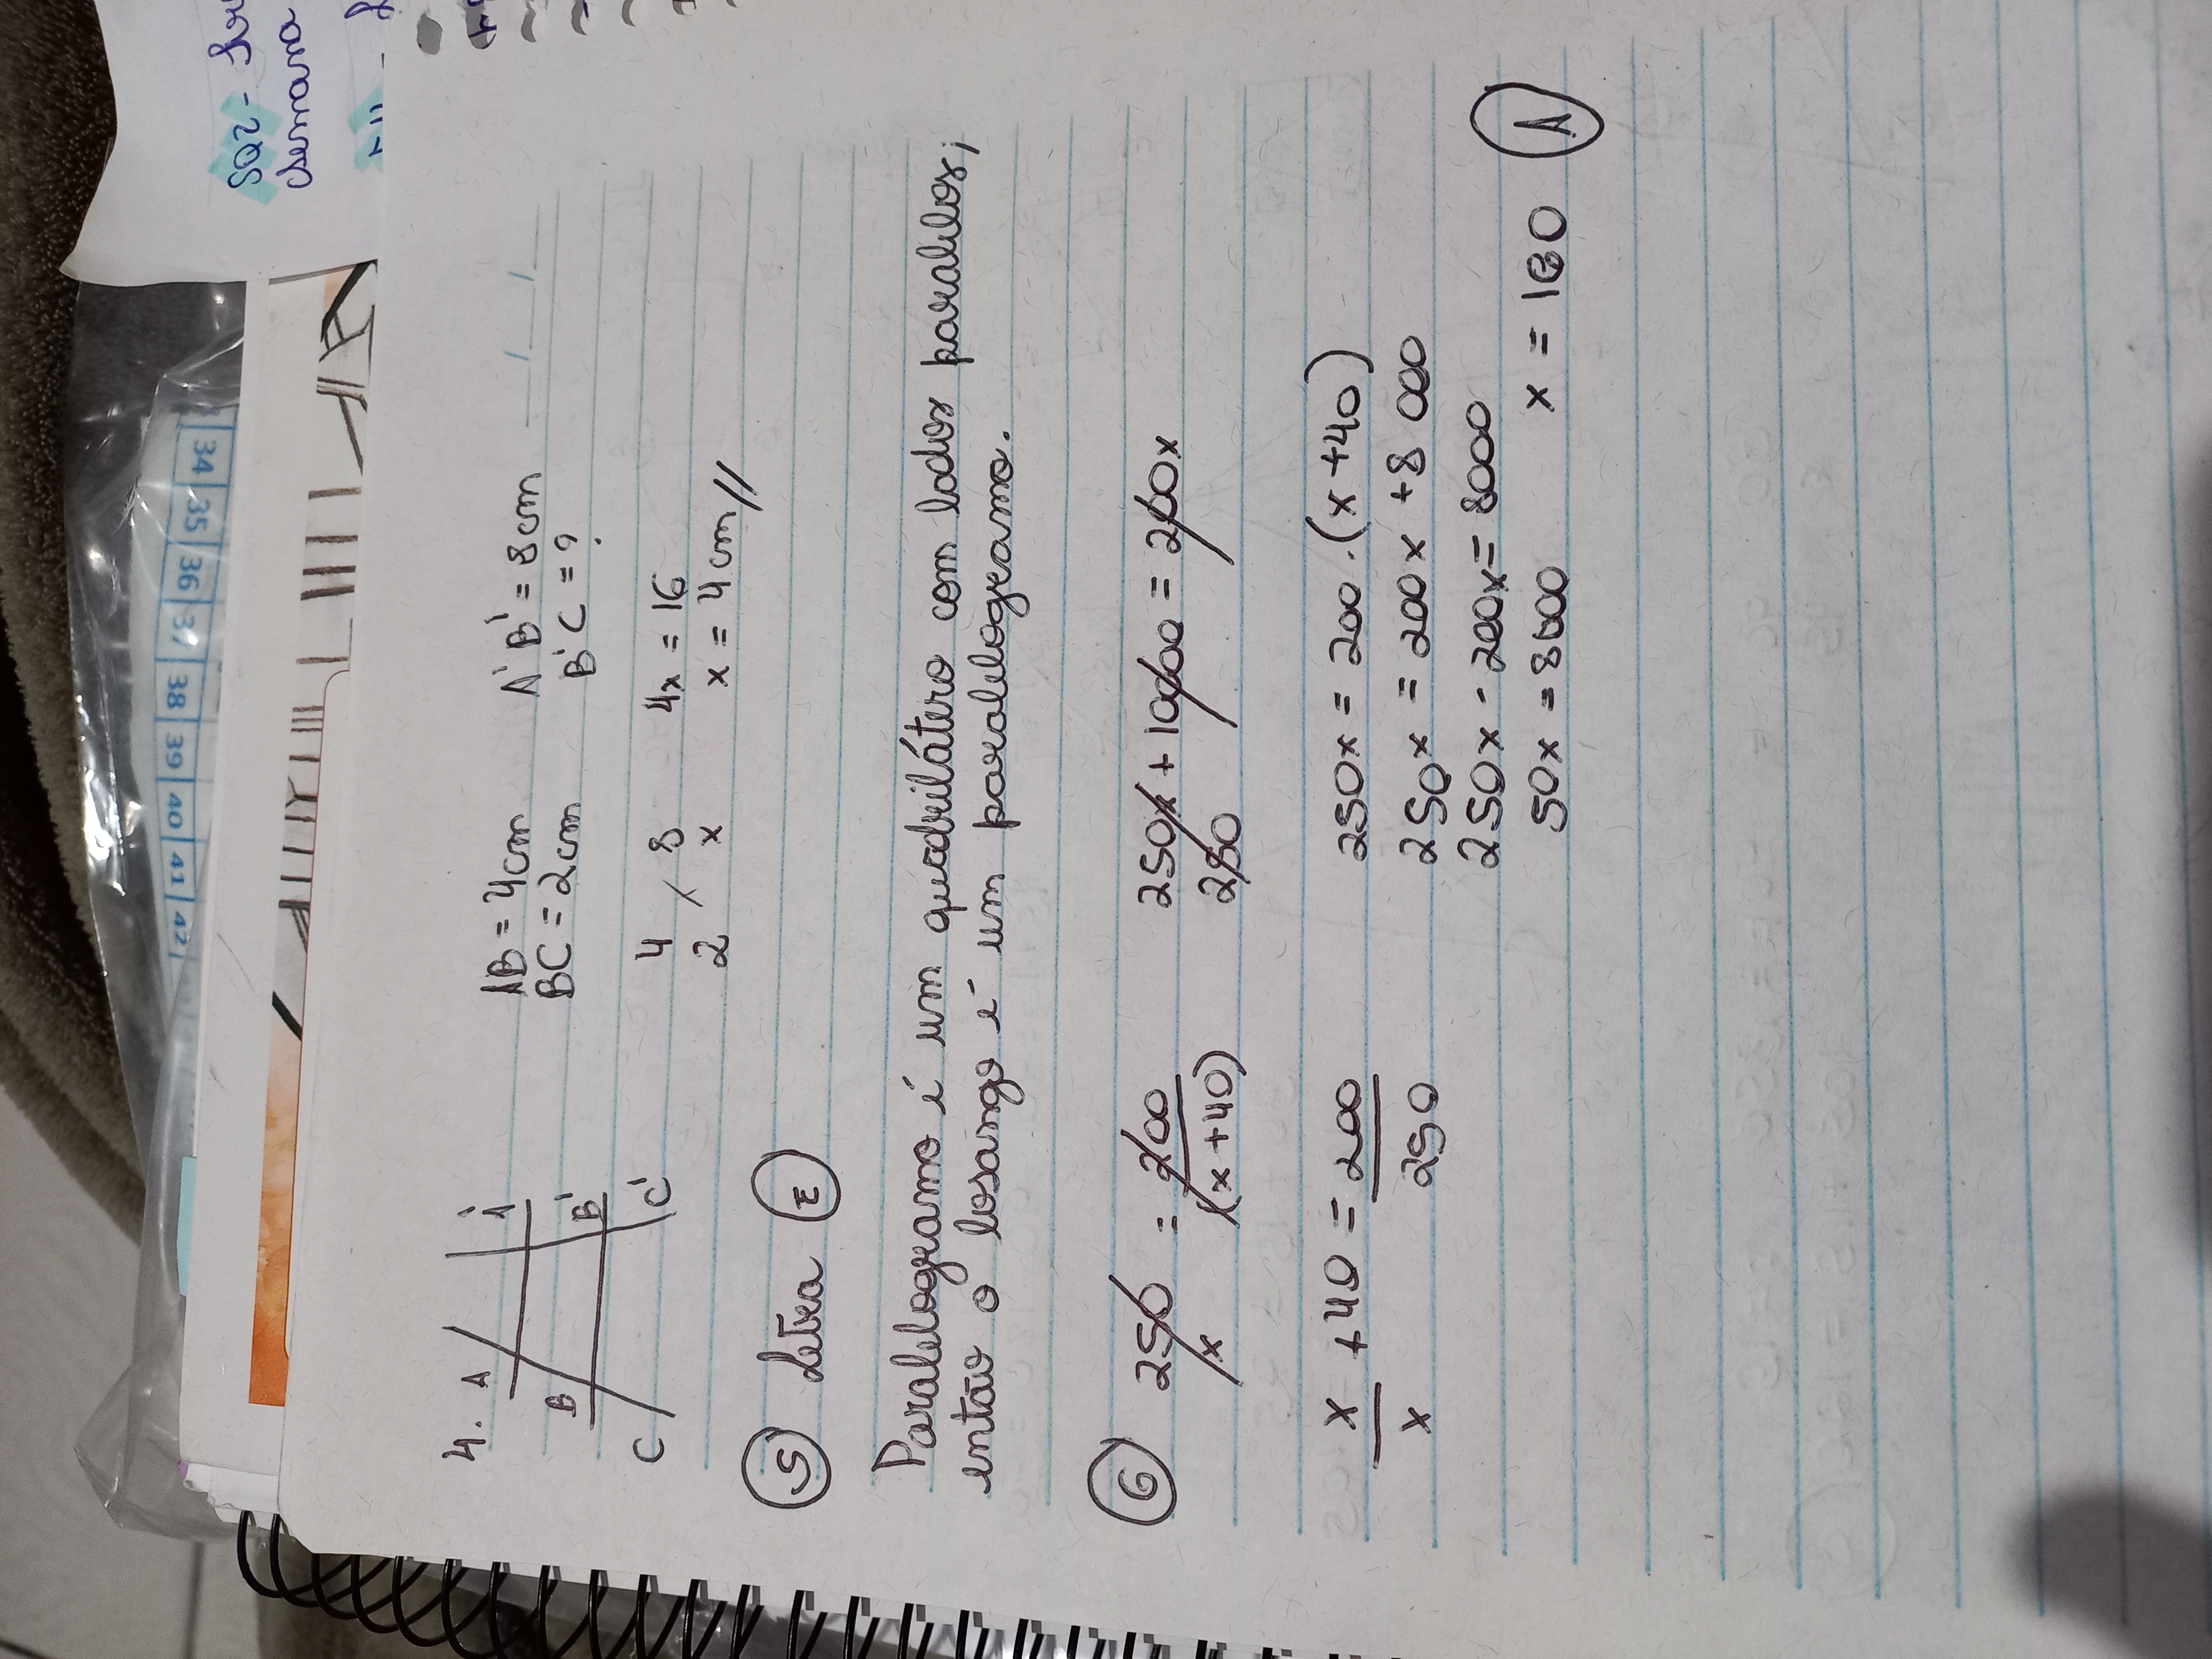 42 41 40 39 38 37 36 35 34
SQ2 -
semana
4. A A'
AB = 4cm A'B' = 8cm
BC = 2cm B'C = ?
B B'
C C'
4 8 4x = 16
2 x x = 4cm//
5 Letra E
Paralelogramo é um quadrilátero com lados paralelos;
então o losango é um paralelogramo.
6 250 = 200 250x + 10000 = 200x
x (x+40) 250
x + 40 = 200 250x = 200.(x+40)
x 250 250x = 200x + 8 000
250x - 200x = 8000
50x = 8000 x = 160 A